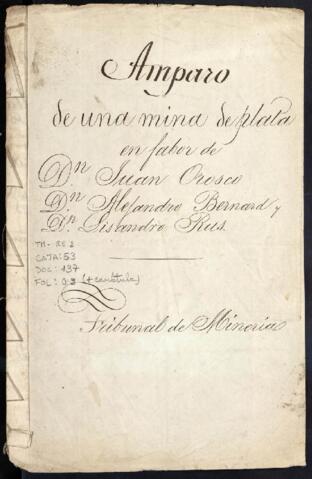 Amparo
de una mina de plata
en fabor de
Dn Juan Orosco
Dn Alejandro Bernard y
Dn Lisandro Rus.
TM-RE 2
CAJA: 53
DOC: 137
FOL: 03 (+ carátula)
Tribunal de Mineria